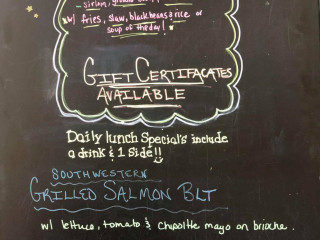 sirloin, ground
w/ fries, slaw, black beans & rice or
soup of the day!
GIFT CERTIFACATES
AVAILABLE
Daily lunch Special's include
a drink & 1 side!!
SOUTHWESTERN
GRILLED SALMON BLT
w/ lettuce, tomato & chipoltle mayo on brioche.